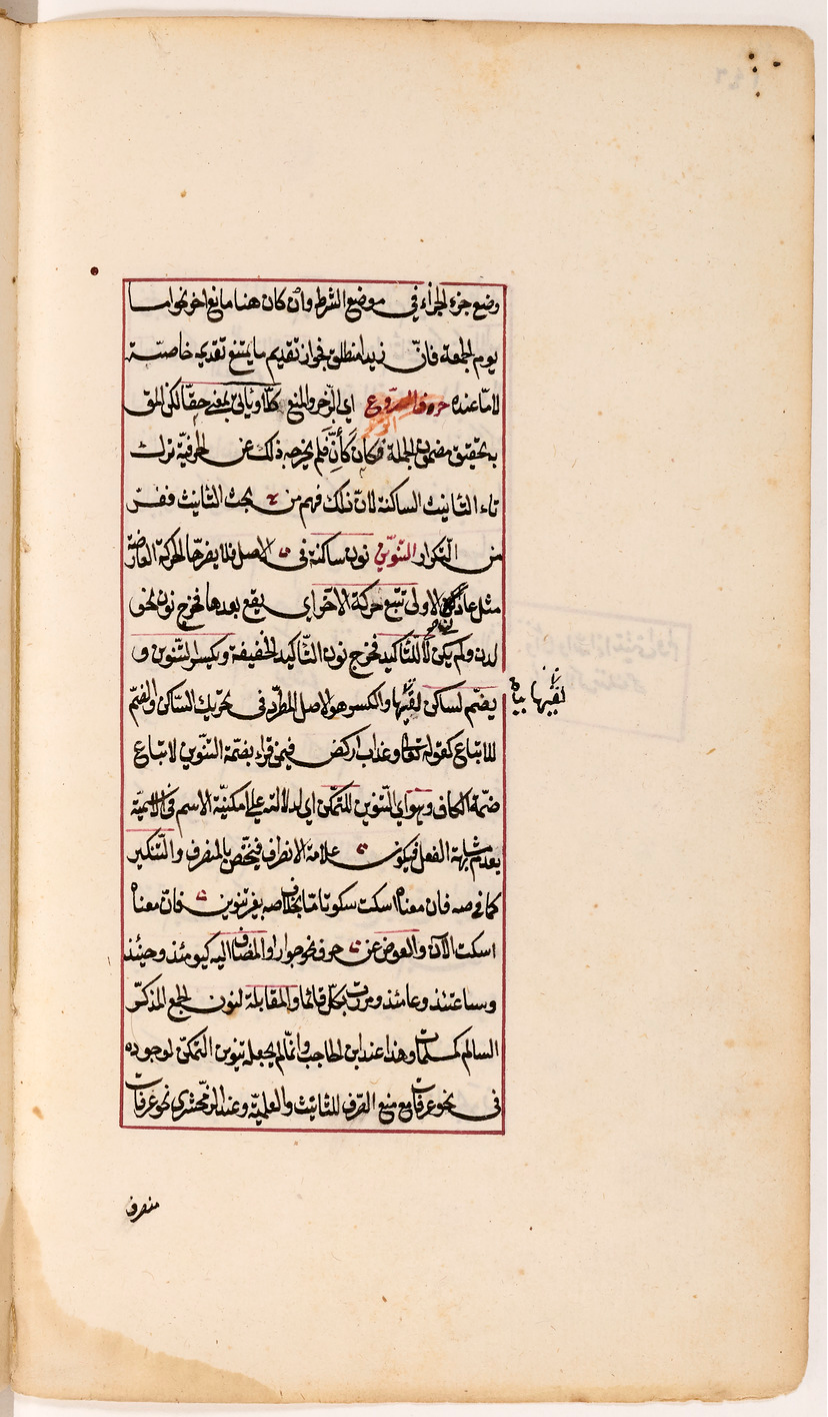 وضع جزء الجزاء في موضع الشرط وان كان هنا مانع اخر نحو اما
يوم الجمعة فانّ زيدا منطلق فجواز تقديم ما يمتنع تقديمه خاصّة
لامّا عنده حرف الردع اي الزّجر والمنع كلّا وياتي بمعنى حقّا لكن المق
به تحقيق مضمون الجملة فكان كَاَنّ فلم يخرجه ذلك عن الحرفيّة ترك
تاء التانيث الساكنة لانّ ذلك فهم من بحث التانيث ففرّ
من التكرار التنوين نون ساكنة في الاصل فلا يضرها الحركة العارضة
مثل عاد الاولى تتبع حركة الآخر اي يقع بعدها فخرج نون نحو
لدن ولم يكن لا للتاكيد فخرج نون التّاكيد الخفيفة ويكسر التنوين و
يضم لساكن لقيها والكسر هو الاصل المطرّد في تحريك السّاكن والضّم
للاتباع كقوله تعالى وعذاب اركض فيمن قراء بضمّة التنوين لاتباع
ضمّة الكاف وهو اي التنوين للتمكّن اي لدلالته على امكنيّة الاسم في الاسميّة
بعدم مشابهة الفعل فيكون علامة الانصراف فيختصّ بالمنصرف والتنكير
كما في صه فان معناه اسكت سكوتا ما بخلاف صه بغير تنوين فان معناه
اسكت الآن والعوض عن حرف نحو جوار او المضاف اليه كيومئذ وحينئذ
وساعتئذ وعامئذ ومررت بكلّ قائما والمقابلة لنون الجمع المذكّر
السالم كمسلمات وهذا عند ابن الحاجب وانّما لم يجعله تنوين التمكن لوجوده
في نحو عرفات مع منع الصّرف للتانيث والعلميّة وعند الزمخشري نحو عرفات
لقيها
منصرف